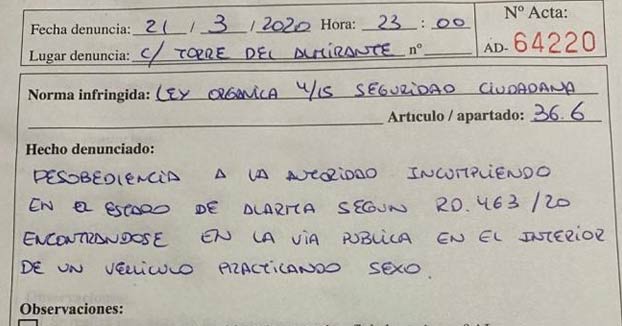 Fecha denuncia: 21 / 3 / 2020 Hora: 23 : 00
Nº Acta:
Lugar denuncia: C/ TORRE DEL ALMIRANTE nº
AD- 64220
Norma infringida: LEY ORGANICA 4/15 SEGURIDAD CIUDADANA
Artículo / apartado: 36.6
Hecho denunciado:
DESOBEDIENCIA A LA AUTORIDAD INCUMPLIENDO
EN EL ESTADO DE ALARMA SEGUN RD. 463/20
ENCONTRANDOSE EN LA VIA PUBLICA EN EL INTERIOR
DE UN VEHICULO PRACTICANDO SEXO.
Observaciones: